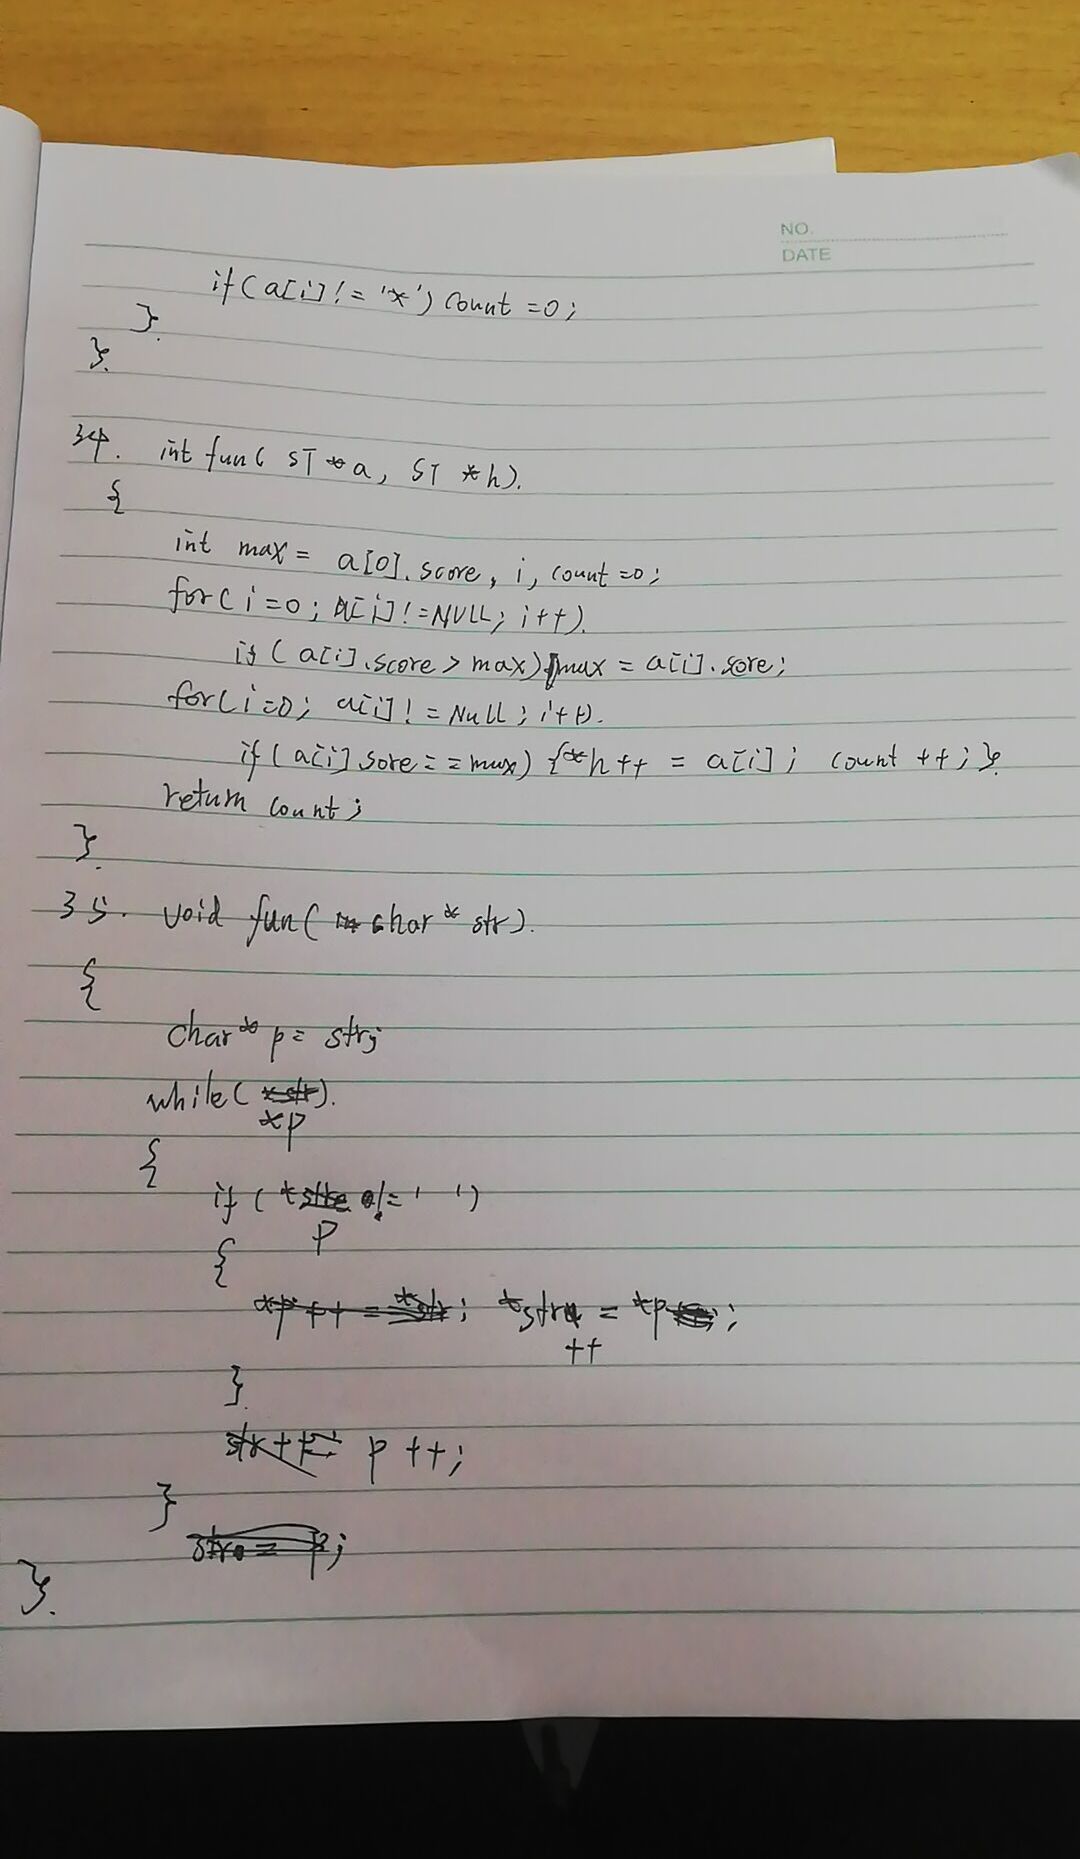 NO.
DATE
if(a[i]!='*') count=0;
}.
}.
34. int fun( ST *a, ST *h).
{
int max = a[0].score, i, count=0;
for(i=0; a[i]!=NULL; i++).
if(a[i].score>max) max = a[i].sore;
for(i=0; a[i]!=Null; i++).
if(a[i].sore==max) {*h++ = a[i]; count++;}.
return count;
}.
35. void fun( char* str).
{
char* p= str;
while(*p).
{
if (*p!=' ')
{
*str++ = *p;
}
p++;
}
}.